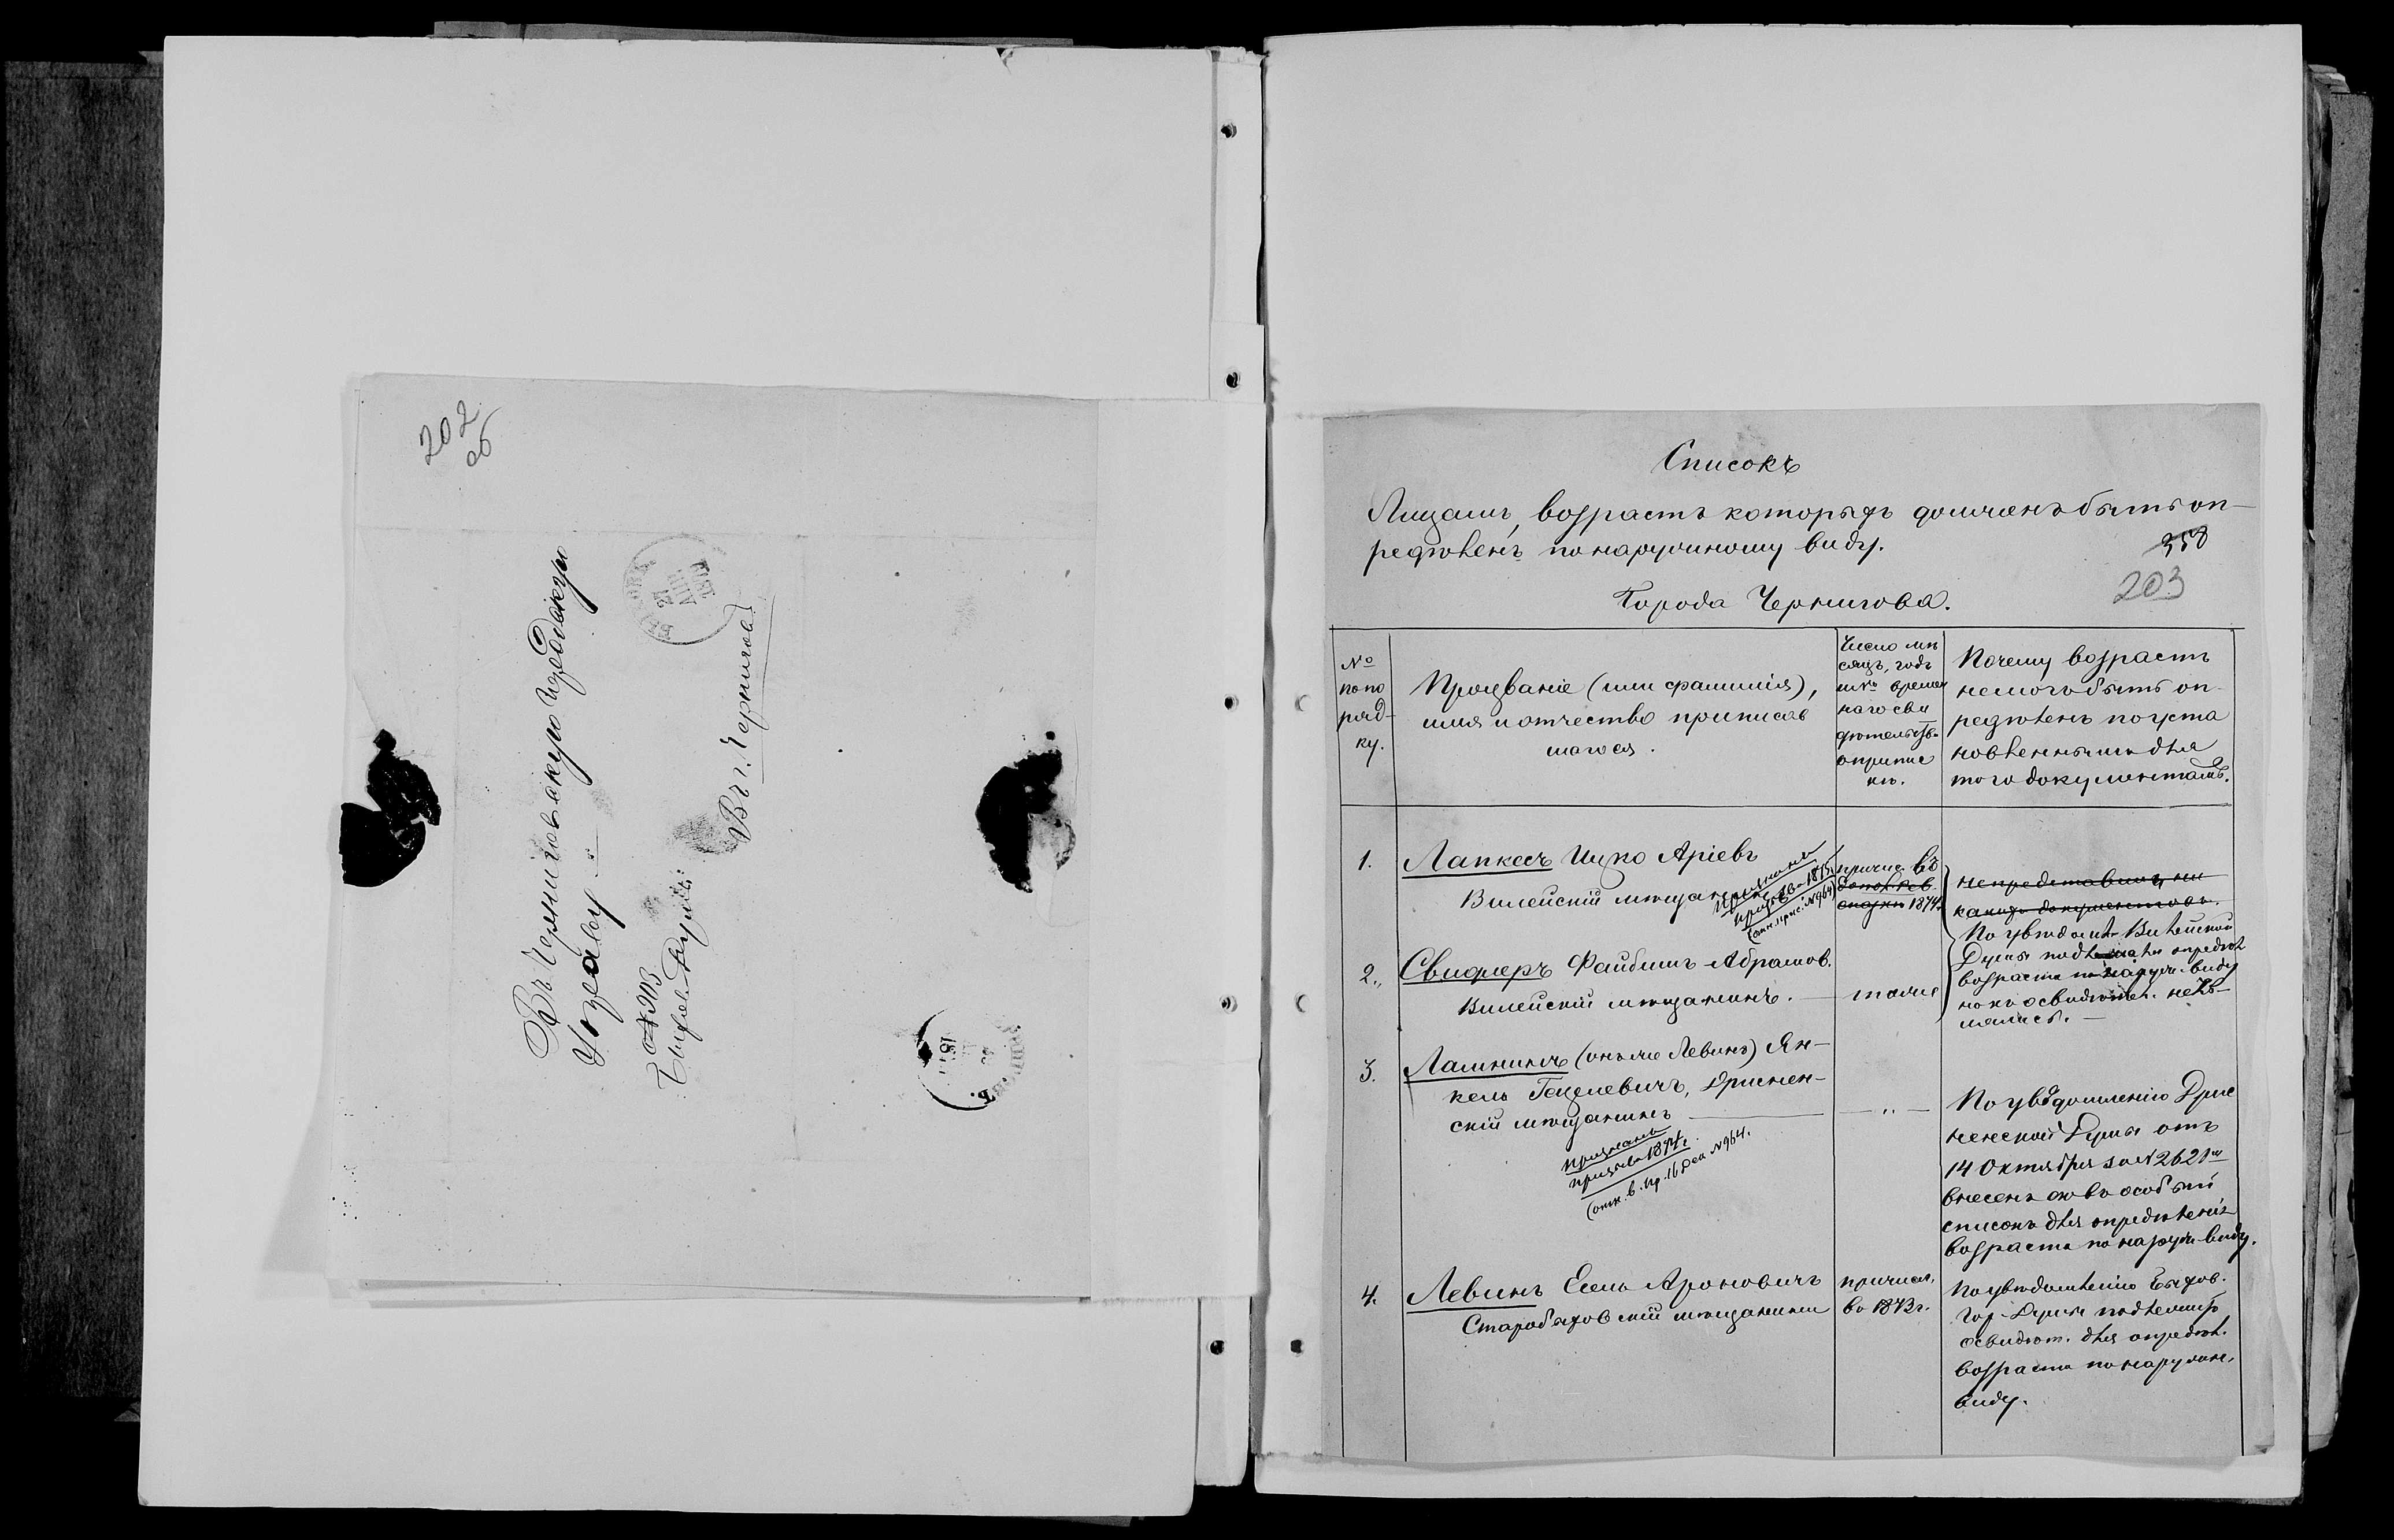 202
об
Въ Черниговскую Городскую
Управу
Въ г. Черниговъ
Списокъ
Лицамъ, возрастъ которыхъ долженъ быть оп-
редѣленъ по наружному виду.
358
203
Города Чернигова.
№
по по
ряд-
ку.
Прозваніе (или фамилія),
имя и отчество приписав
шагося.
Число мѣ
сяцъ, годъ
и № времен
наго сви
дѣтельств.
о припис
кѣ.
Почему возрастъ
не могъ быть оп-
редѣленъ по уста
новленнымъ для
того документамъ.
1.
Лапкесъ Ицко Аріевъ
Вилейскій мѣщанинъ
причис. въ
1874
не представилъ ни
какихъ документовъ.
По увѣдомл. Вилейской
Думы подлежали опредѣл
возраста по наружн. виду
но къ освидѣтел. не яв-
лялись. —
2.
Свидлеръ Файбишъ Абрамов.
Вилейскій мѣщанинъ. —
тоже
3.
(онъ же Левинъ) Ян-
кель Гецелевичъ, Дриссен-
скій мѣщанинъ
признанъ
призыва 1874 г.
16 Дек № 964.
— " —
По увѣдомленію Дрис
сенской Думы отъ
14 Октября за № 2621
внесенъ онъ въ особый
списокъ для опредѣленія
возраста по наружн. виду.
4.
Левинъ Есель Ароновичъ
Старобыховскій мѣщанинъ
причисл.
въ 1873 г.
По увѣдомленію Быхов.
Гор. Думы подлежитъ
освидѣт. для опредѣл.
возраста по наружн.
виду.